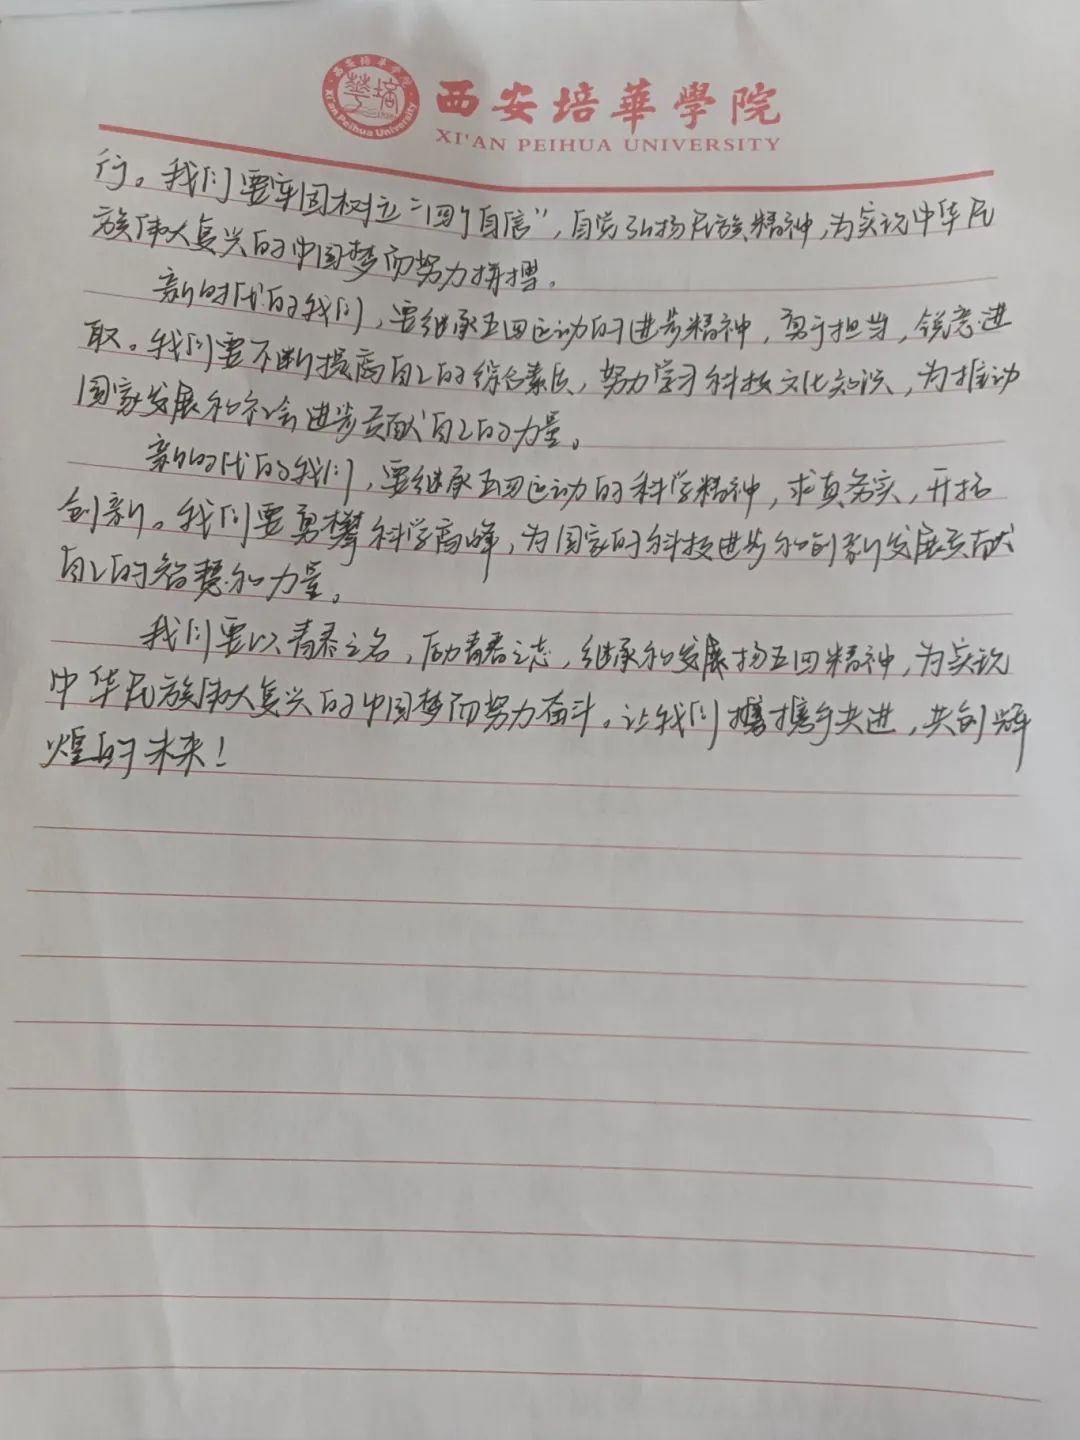 西安培華學院
XI'AN PEIHUA UNIVERSITY
行。我们要牢固树立“四个自信”,自觉弘扬民族精神,为实现中华民
族伟大复兴的中国梦而努力拼搏。
新时代的我们,要继承五四运动的进步精神,勇于担当,锐意进
取。我们要不断提高自己的综合素质,努力学习科技文化知识,为推动
国家发展和社会进步贡献自己的力量。
新时代的我们,要继承五四运动的科学精神,求真务实,开拓
创新。我们要勇攀科学高峰,为国家的科技进步和创新发展贡献
自己的智慧和力量。
我们要以青春之名,励青春之志,继承和发展扬五四精神,为实现
中华民族伟大复兴的中国梦而努力奋斗。让我们携携手共进,共创辉
煌的未来!